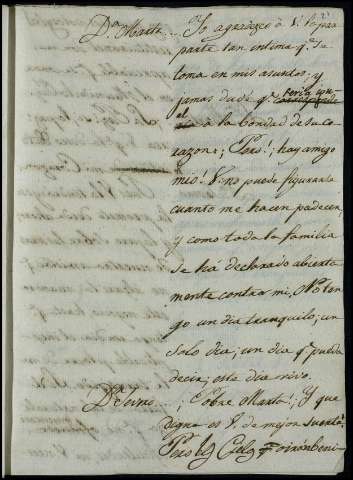 D.ª Marta... Yo agradezco á V. la
parte tan intima q.e se
toma en mis asuntos; y
jamas dudé q.e
á la bondad de su co-
razon; Pero! ¡hay amigo
mio! V. no puede figurarse
cuanto me hacen padecer,
y como toda la familia
se há declarado abierta-
mente contra mi. No ten-
go un dia tranquilo; un
solo dia; un dia q.e pueda
decir; este dia vivo.
Pobre Marta!; Y que
digna es V. de mejor suerte!
Pero los oirán